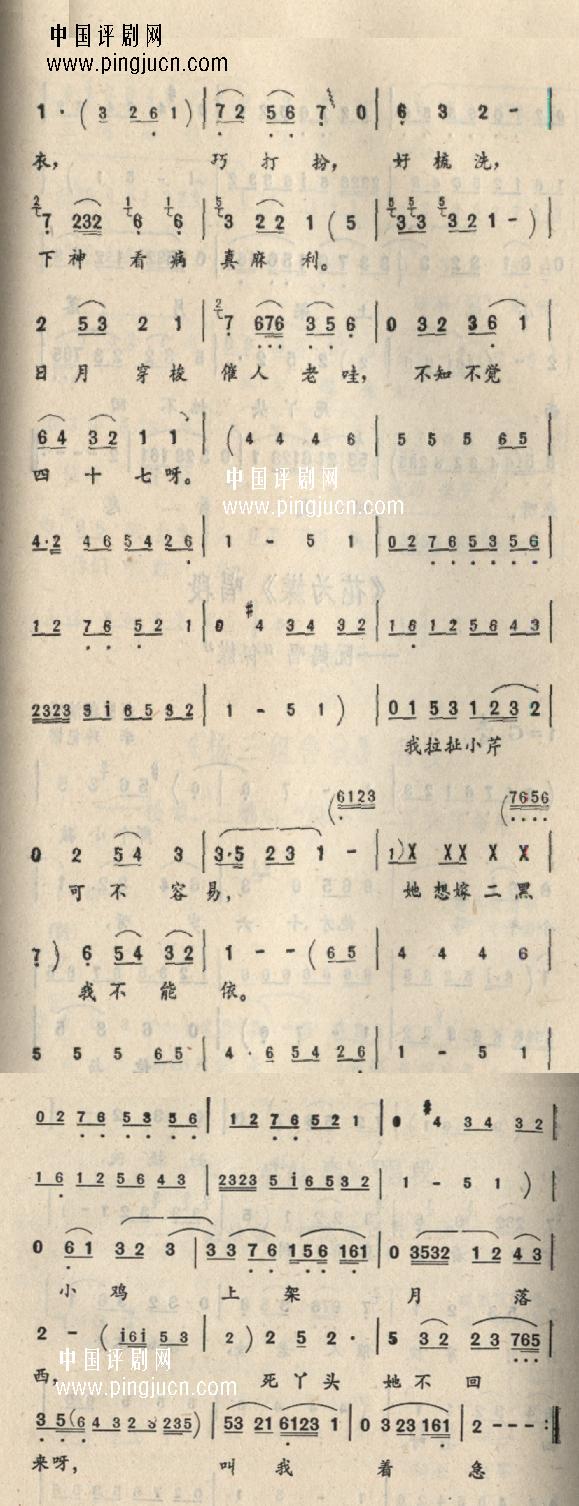 中国评剧网
www.pingjucn.com
1·( 3 2 6 1 ) | 7 2 5 6 7 0 | 6 3 2 - |
衣， 巧打扮， 好梳洗，
7 232 6 6 | 3 22 1 ( 5 | 33 321 - ) |
下神看病真麻利。
2 53 2 1 | 7 676 35 6 | 0 32 36 1 |
日月穿梭催人老哇， 不知不觉
64 32 1 1 | ( 4 4 4 6 | 5 5 5 65 |
四十七呀。
中国评剧网
www.pingjucn.com
4·2 46 5426 | 1 - 5 1 | 02 765356 |
12 76 52 1 | 0 #4 34 32 | 16 125643 |
2323 5i6532 | 1 - 5 1 ) | 01 531232 |
我拉扯小芹
(6123 (7656
0 2 54 3 | 3·5 23 1 - | 1)X XX X X
可不容易， 她想嫁二黑
7 ) 6 54 32 | 1 - - ( 65 | 4 4 4 6 |
我不能依。
5 5 5 65 | 4·6 54 26 | 1 - 5 1
02 76 53 56 | 12 76 52 1 | 0 #4 34 32 |
16 125643 | 2323 5i6532 | 1 - 5 1 ) |
0 61 32 3 | 33 76 156 161 | 0 3532 12 43
小鸡上架月落
2 - ( i6i 53 | 2 ) 2 5 2· | 5 32 23 765
西， 死丫头她不回
中国评剧网
www.pingjucn.com
3 5(6 432 3 235) | 53 21 6123 1 | 0 323161 | 2 - - - :||
来呀， 叫我着急